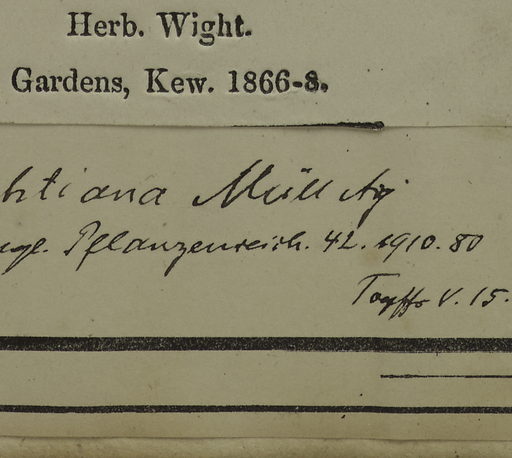 Herb. Wight.
Gardens, Kew. 1866-8.
htiana Müll Arg
ngl. Pflanzenreich. 42. 1910. 80
V. 15.